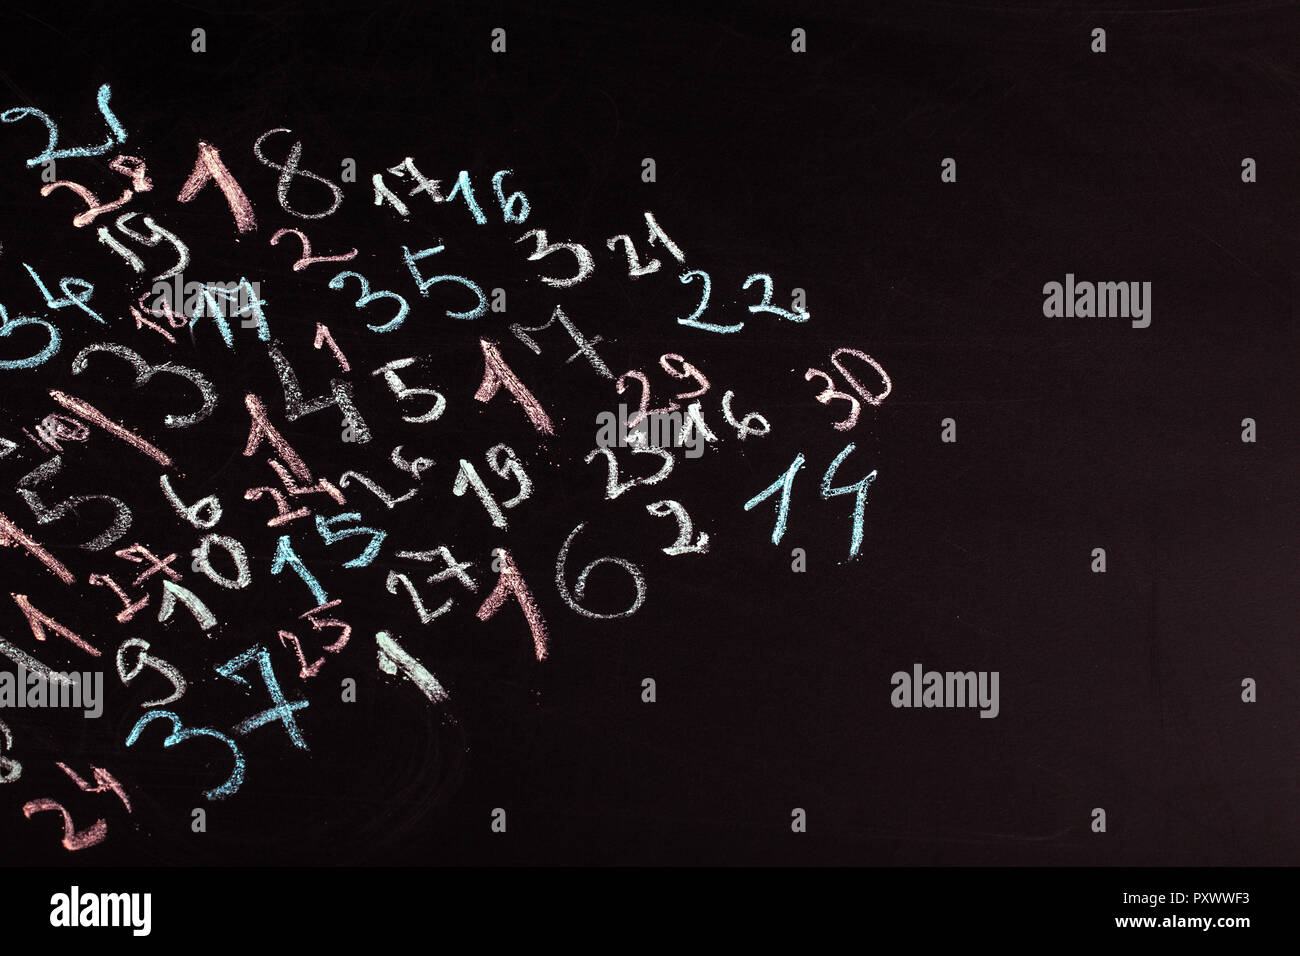 21
28
18
17
16
19
2
35
3
21
22
34
18
17
1
17
3
4
5
1
29
30
16
1
10
1
26
19
23
14
5
6
24
15
2
17
10
1
27
16
1
9
25
1
37
24
alamy
alamy
alamy
alamy
alamy
alamy
Image ID: PXWWF3
www.alamy.com